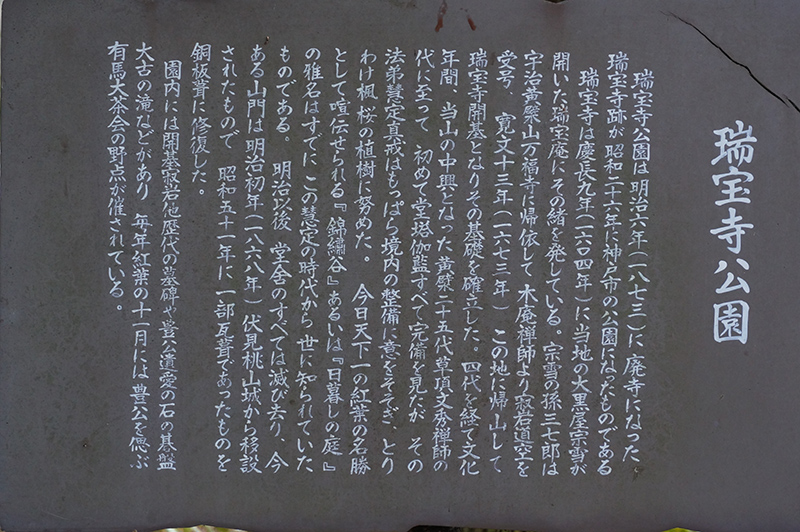 瑞宝寺公園
瑞宝寺公園は明治六年(一八七三)に廃寺になった
瑞宝寺跡が昭和二十六年に神戸市の公園になったものである
瑞宝寺は慶長九年(一六〇四年)に当地の大黒屋宗雪が
開いた瑞宝庵にその緒を発している。宗雪の孫三七郎は
宇治黄檗山万福寺に帰依して木庵禅師より寂岩道空を
受号、寛文十三年(一六七三年)この地に帰山して
瑞宝寺開基となりその基礎を確立した。四代を経て文化
年間、当山の中興となった黄檗二十五代草頂文秀禅師の
代に至って初めて堂塔伽藍すべて完備を見たが その
法弟慧定直戒はもっぱら境内の整備に意をそそぎ、とり
わけ楓桜の植樹に努めた。今日天下一の紅葉の名勝
として喧伝せられる『錦繡谷』あるいは『日暮しの庭』
の雅名はすでに この慧定の時代から世に知られていた
ものである。明治以後 堂舎のすべては滅び去り、今
ある山門は明治初年(一八六八年)伏見桃山城から移設
されたもので 昭和五十一年に一部瓦葺であったものを
銅板葺に修復した。
園内には開基寂岩他歴代の墓碑や豊公遺愛の石の碁盤
大古の滝などがあり 毎年紅葉の十一月には豊公を偲ぶ
有馬大茶会の野点が催されている。